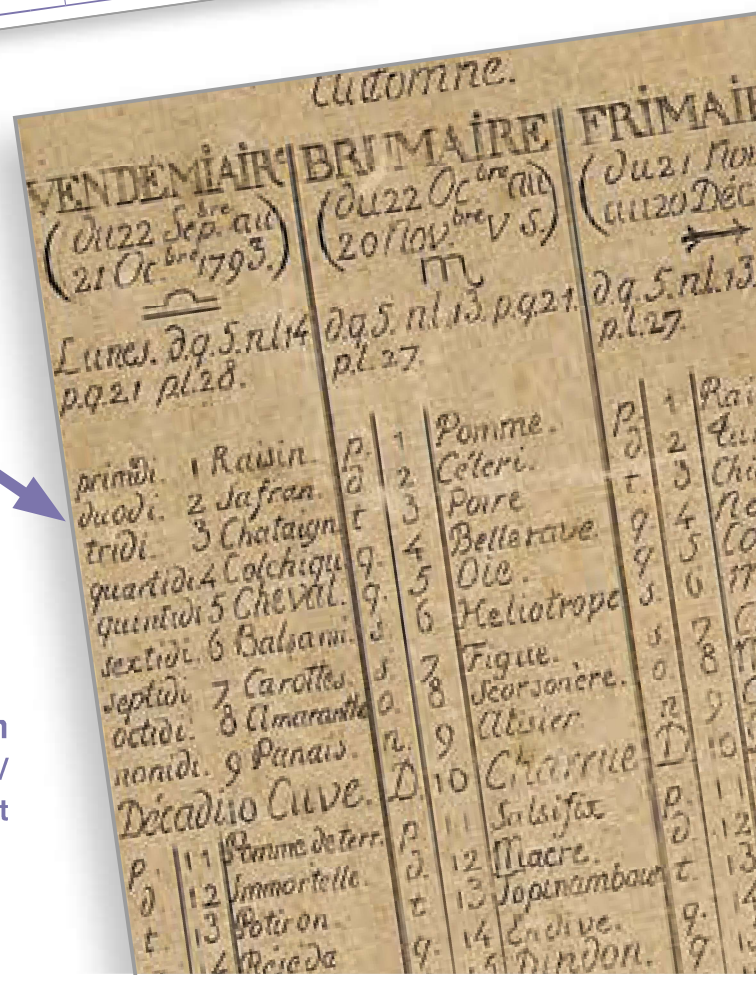 Automne.
VENDÉMIAIRE
(du 22 Sep.bre au
21 Oc.bre 1793.)
Lunes. d.q.5. n.l.14
p.q.21 p.l.28.
primdi. 1 Raisin.
duodi. 2 Safran.
tridi. 3 Chataign
quartidi 4 Colchiqu
quintidi 5 Cheval.
sextidi. 6 Balsami.
septidi 7 Carottes.
octidi. 8 Amaranthe
nonidi. 9 Panais.
Décadi 10 Cuve.
p. 11 Pomme de terr.
d 12 Immortelle.
t. 13 Potiron.
4 Réséda
BRUMAIRE
(du 22 Oc.bre au
20 Nov.bre V S.)
d.q.5. n.l.13. p.q.21.
p.l.27.
p. 1 Pomme.
d 2 Céleri.
t 3 Poire
q. 4 Betterave.
q. 5 Oie.
s. 6 Heliotrope
s. 7 Figue.
o. 8 Scorsonère.
n. 9 Alisier.
D. 10 Charrue
p. 11 Salsifix
d. 12 Macre.
t 13 Topinambour
q. 14 Endive.
15 Dindon.
FRIMAI
(du 21 Nov
au 20 Déc
d.q.5. n.l.13.
p.l.27.
p. 1 Rai
d 2
t. 3 Chi
q 4
q 5
s. 6
s. 7
o. 8
n 9
D 10
p. 11
d. 12
t. 13
q.
q
n
/
t